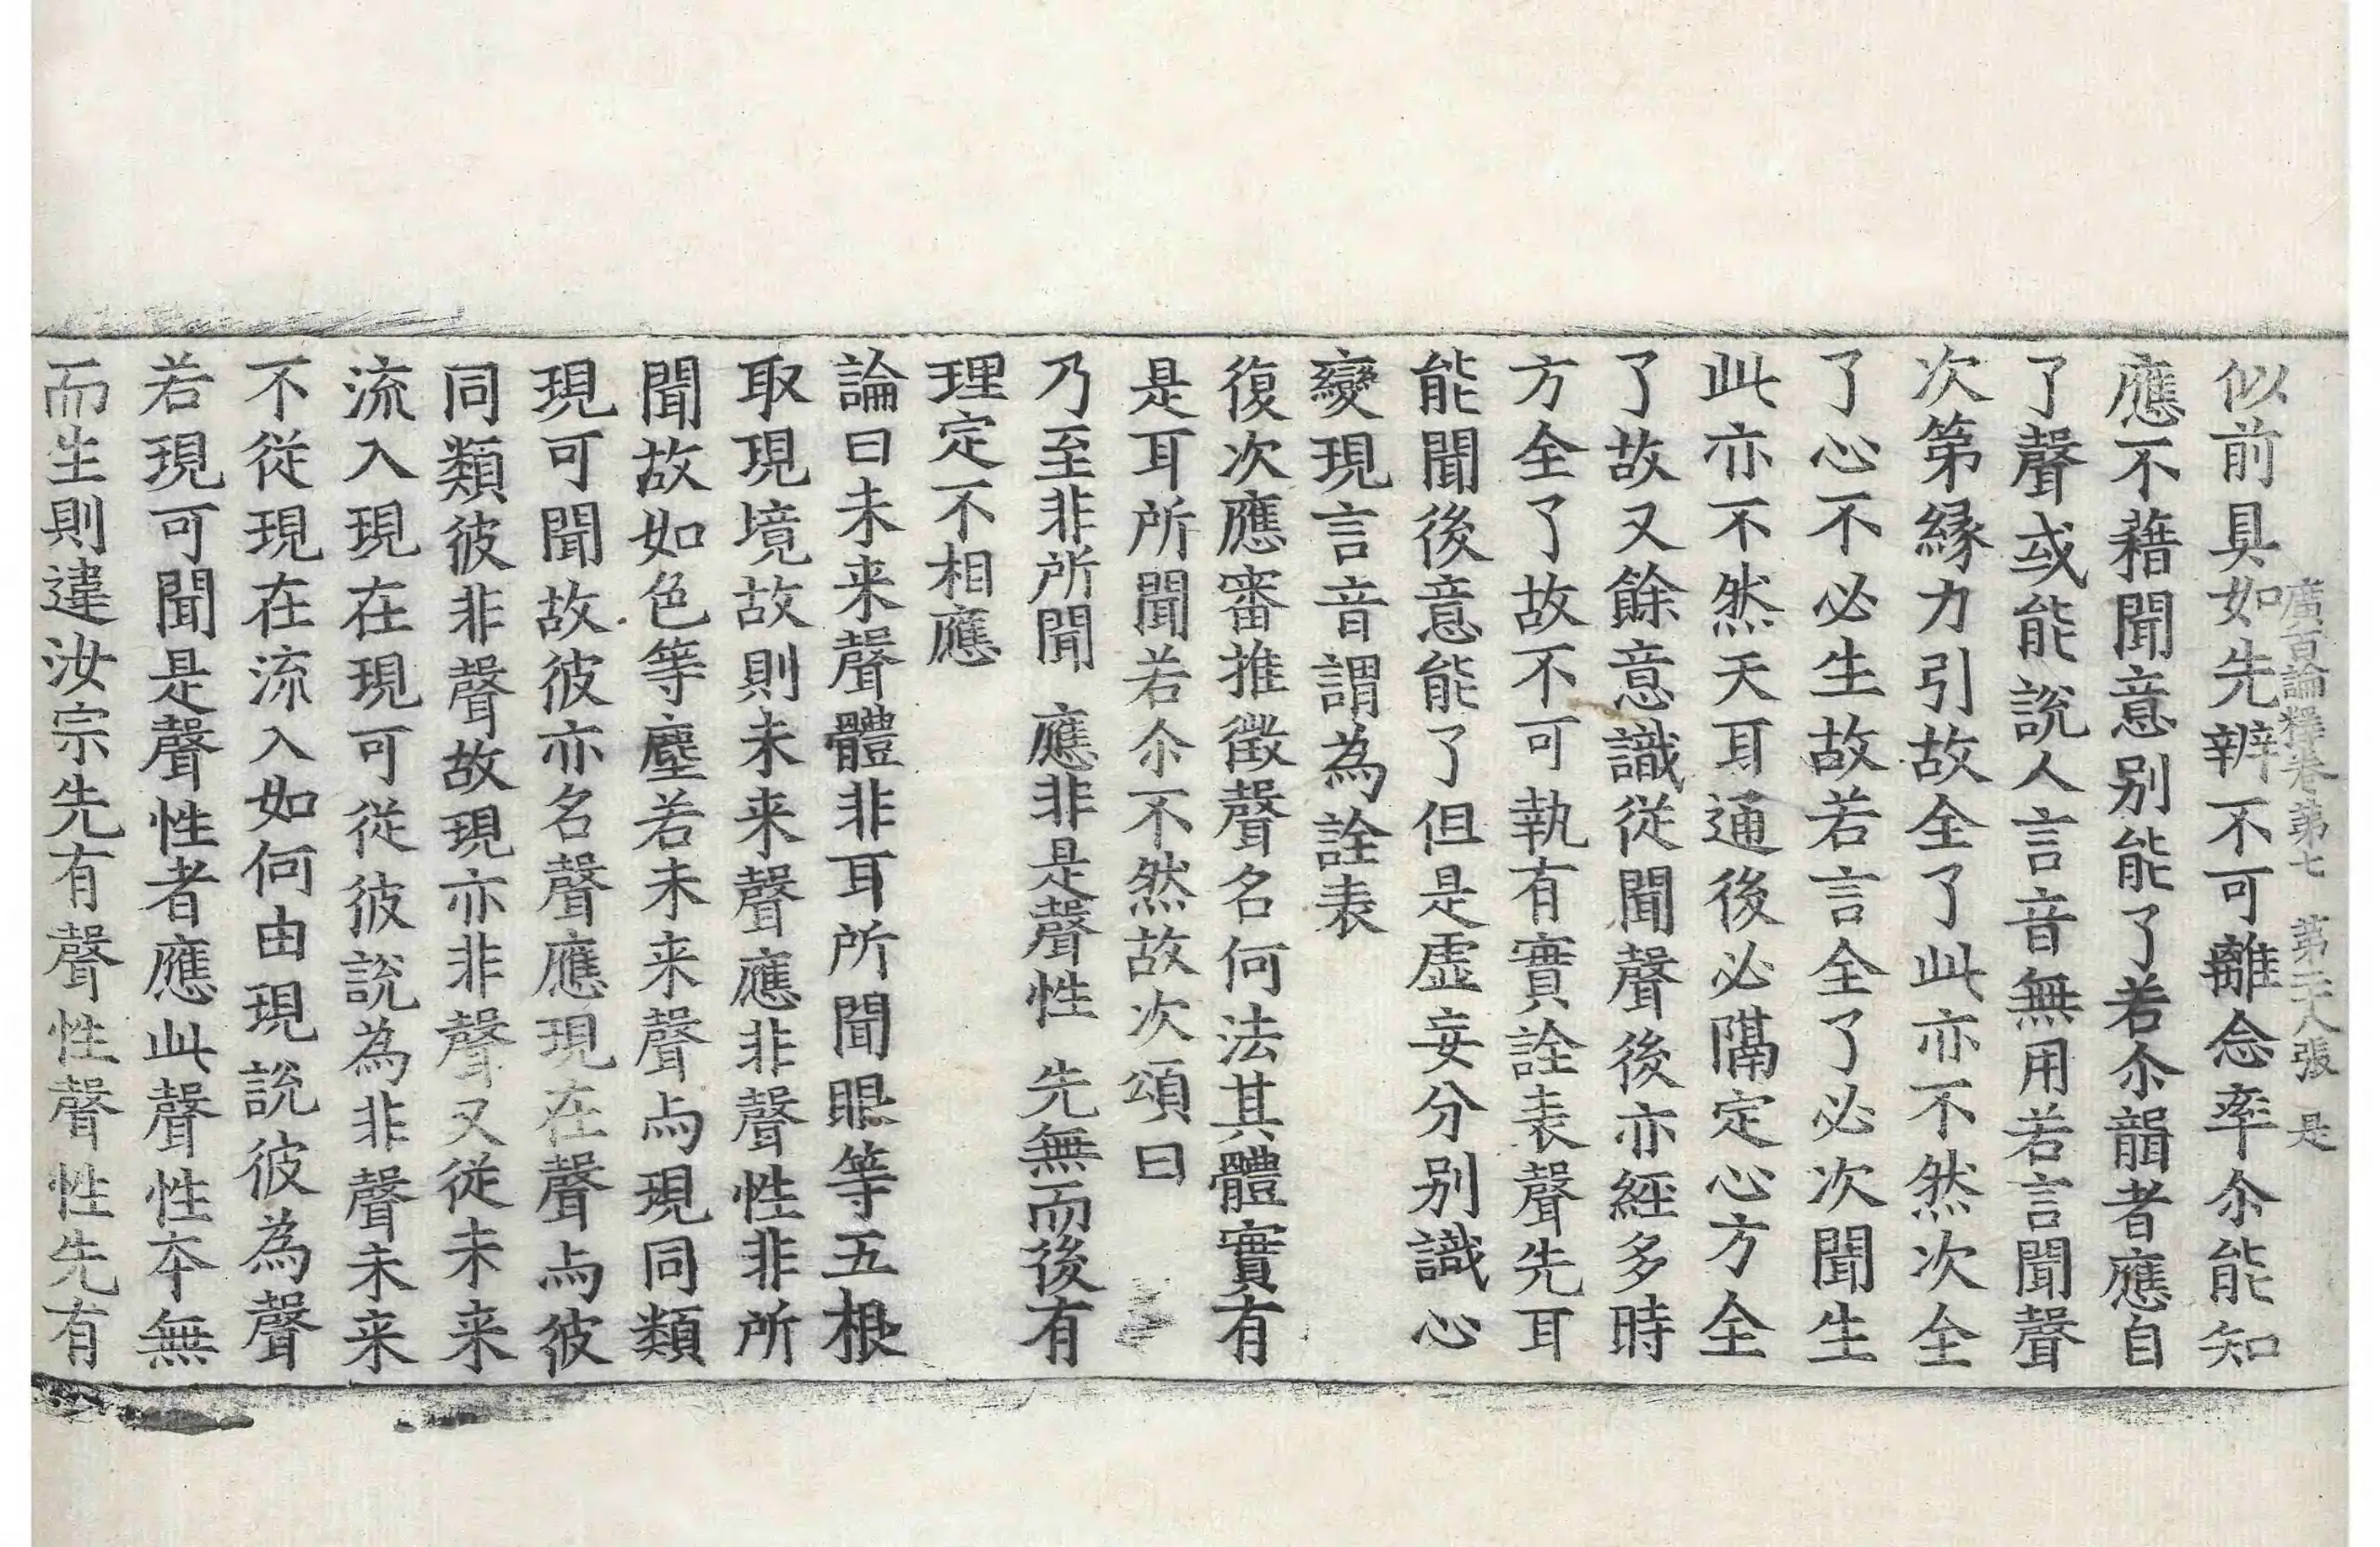 廣百論釋卷第七 第二八張 是
似前具如先辨不可離念率尒能知
應不藉聞意別能了若尒韻者應自
了聲或能說人言音無用若言聞聲
次第縁力引故全了此亦不然次全
了心不必生故若言全了必次聞生
此亦不然天耳通後必隔定心方全
了故又餘意識從聞聲後亦經多時
方全了故不可執有實詮表聲先耳
能聞後意能了但是虛妄分別識心
變現言音謂為詮表
復次應審推徵聲名何法其體實有
是耳所聞若尒不然故次頌曰
乃至非所聞 應非是聲性 先無而後有
理定不相應
論曰未来聲體非耳所聞眼等五根
取現境故則未来聲應非聲性非所
聞故如色等塵若未来聲与現同類
現可聞故彼亦名聲應現在聲与彼
同類彼非聲故現亦非聲又從未来
流入現在現可從彼說為非聲未来
不從現在流入如何由現說彼為聲
若現可聞是聲性者應此聲性本無
而生則違汝宗先有聲性聲性先有